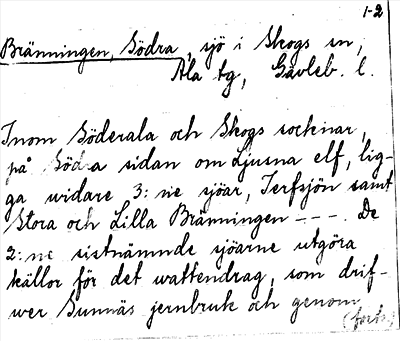 1-2
Bränningen, Södra, sjö i Skogs sn,
Ala tg, Gävleb. l.
Inom Söderala och Skogs socknar,
på Södra sidan om Ljusna elf, lig-
ga widare 3:ne sjöar, Terfsjön samt
Stora och Lilla Bränningen ---. De
2:ne sistnämnde sjöarne utgöra
källor för det wattendrag, som drif-
wer Sunnäs jernbruk och genom
(forts)